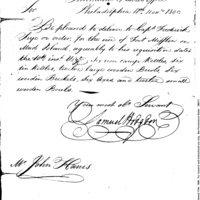 Philadelphia 11th Novr 1800
Sir
Be pleased to deliver to Capt Frederick
Frye or order for the use of Fort Mifflin on
Mud Island, agreeably to his requisition dated
the 10th inst
six tin kettles, twelve large wooden Bowls, Six
wooden Buckets, Six Axes and twelve small
wooden Bowls.
Your most Obt Servant
Samuel Hodgdon
Mr John Harris